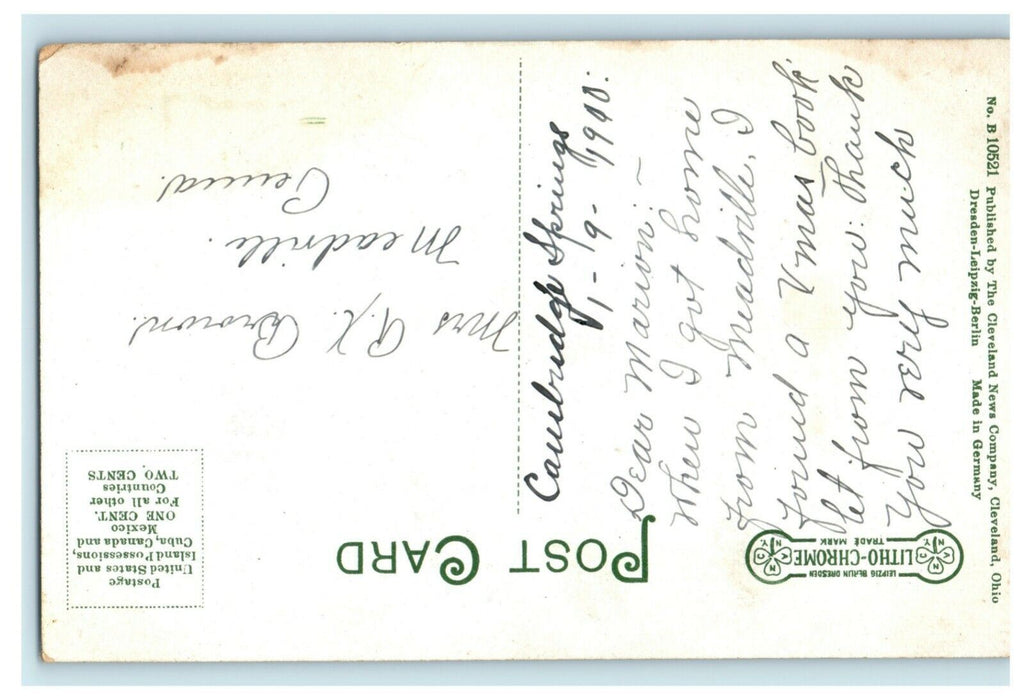 POST CARD
Cambridge Springs
1-9-1910:
Dear Marion:-
When I got home
from Meadville, I
found a Xmas book
let from you: Thank
you very much
Mrs Brown.
Meadville.
Penna.
Postage
United States and
Island Possessions,
Cuba, Canada and
Mexico
ONE CENT.
For all other
Countries
TWO CENTS
LEIPZIG BERLIN DRESDEN
LITHO-CHROME
TRADE MARK
N.Y.
N.Y.
No. B 10521 Published by The Cleveland News Company, Cleveland, Ohio
Dresden-Leipzig-Berlin Made in Germany